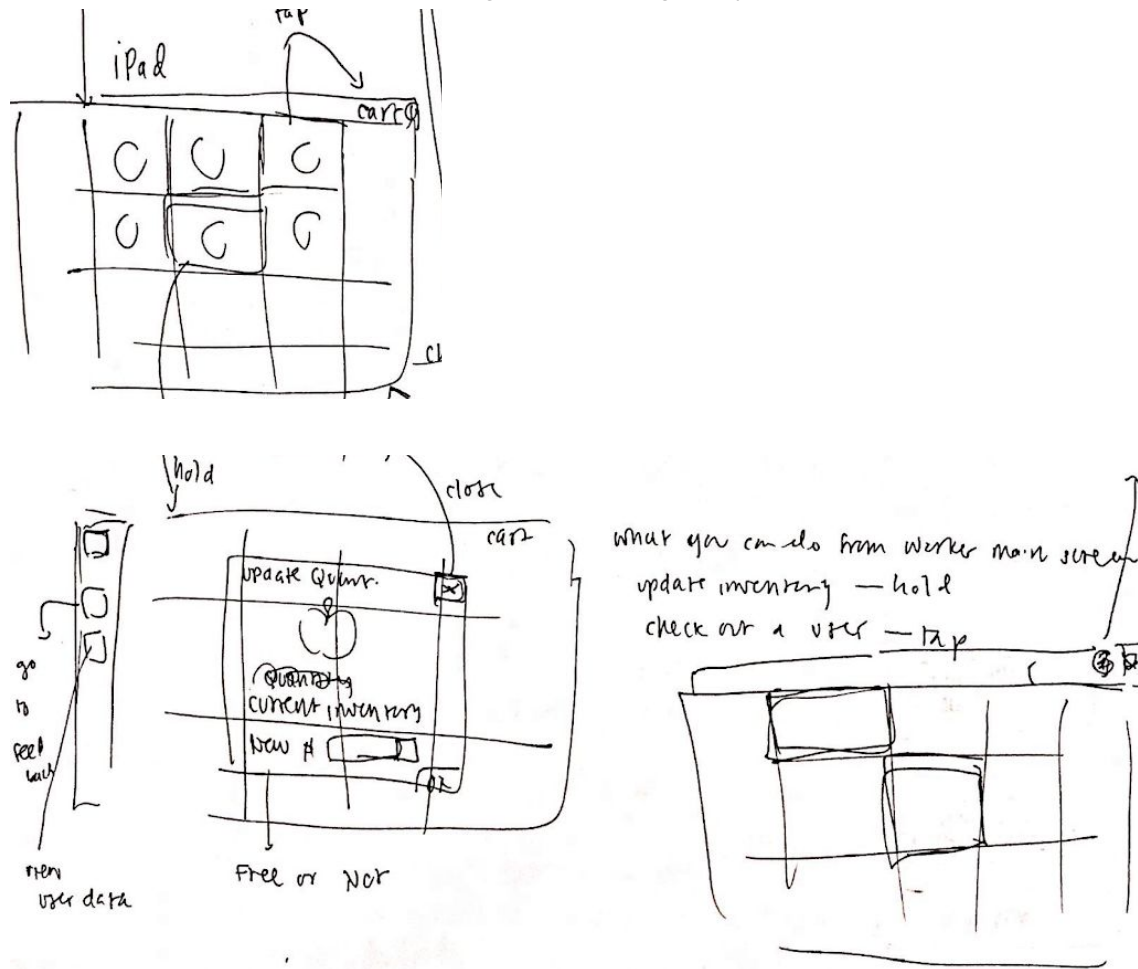 tap
iPad
cart
hold
close
cart
update Quant.
X
Quantity
current inventory
New #
OK
go
to
feed
back
view
user data
Free or Not
what you can do from worker main screen
update inventory — hold
check out a user — tap